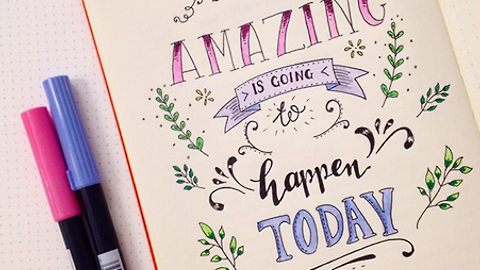 AMAZING
IS GOING
to
happen
TODAY